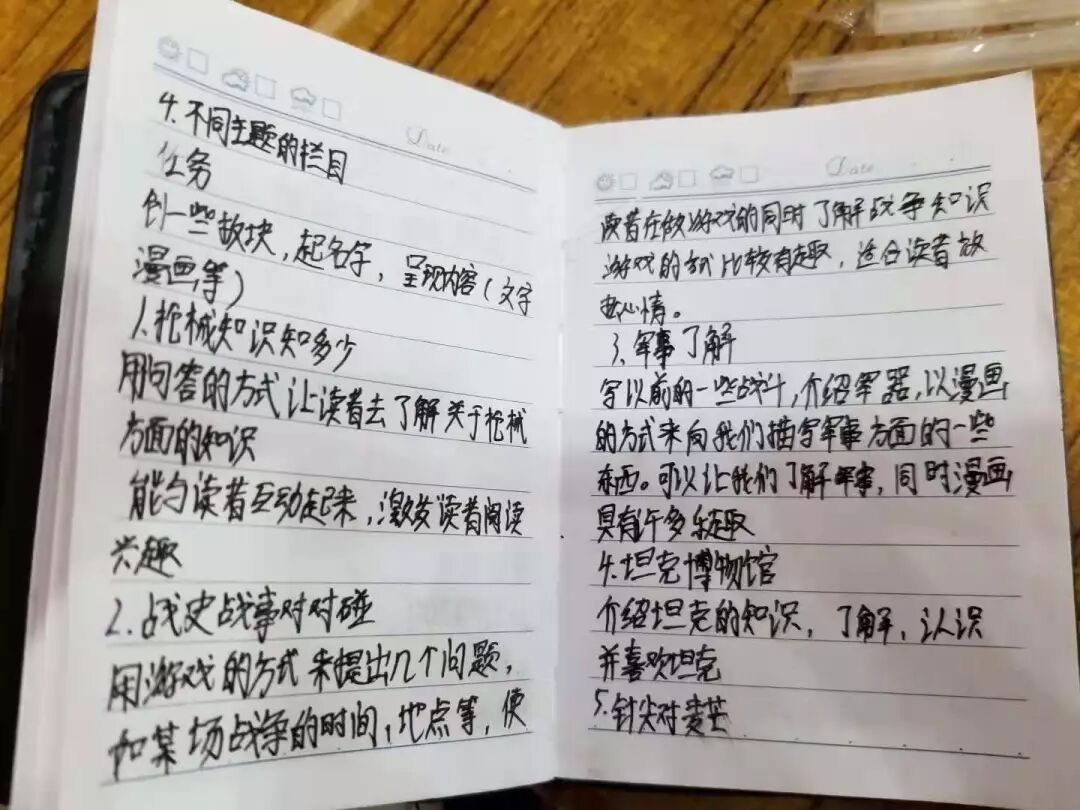 Date
4.不同主题的栏目
任务
创一些板块,起名字,呈现内容(文字
漫画等)
1.枪械知识知多少
用问答的方式让读者去了解关于枪械
方面的知识
能与读者互动起来,激发读者阅读
兴趣
2.战史战事对对碰
用游戏的方式来提出几个问题,
如某场战争的时间,地点等,使
Date
读者在做游戏的同时了解战争知识
游戏的方式比较有趣,适合读者放
心情。
3.军事了解
写以前的一些战斗,介绍军器,以漫画
的方式来向我们描写军事方面的一些
东西。可以让我们了解军事,同时漫画
具有许多乐趣
4.坦克博物馆
介绍坦克的知识,了解,认识
并喜欢坦克
5.针尖对麦芒